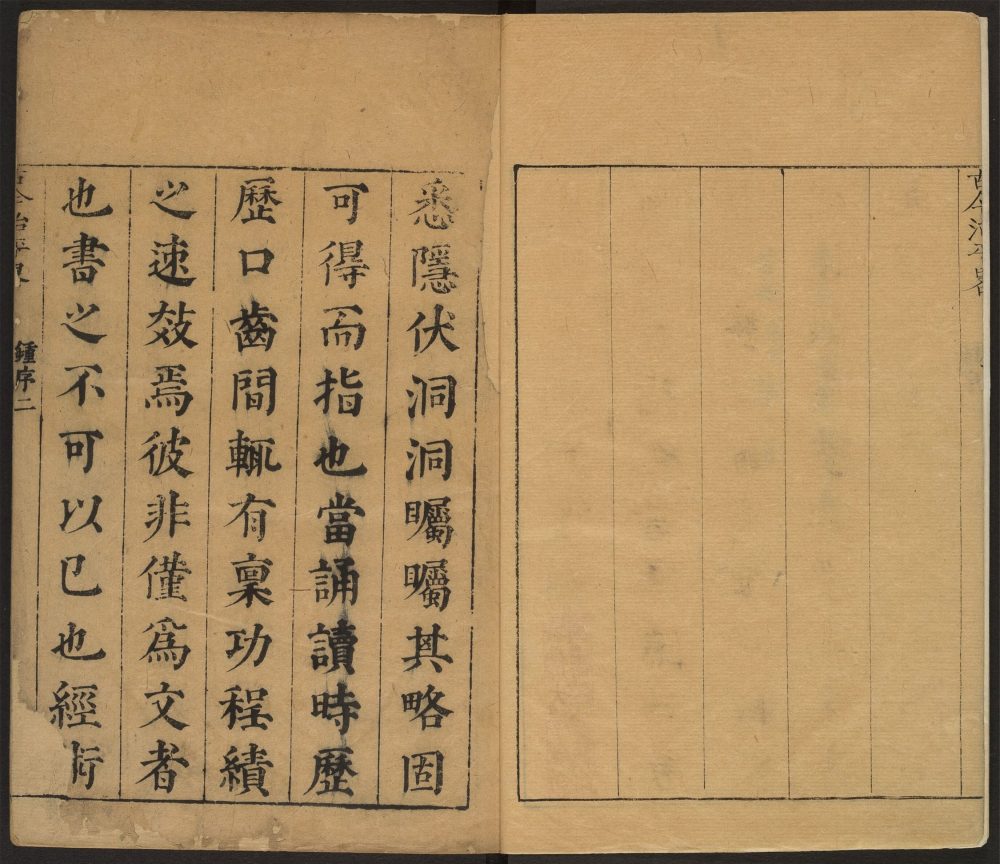 古今治平畧
悉隱伏洞洞矚矚其略固
可得而指也當誦讀時歷
歷口齒間輒有稟功程績
之速效焉彼非僅爲文者
也書之不可以已也經術
古今治平畧
鍾序二